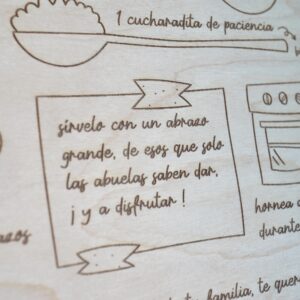 1 cucharadita de paciencia
sírvelo con un abrazo
grande, de esos que solo
las abuelas saben dar,
¡ y a disfrutar !
hornea
durante
familia, te